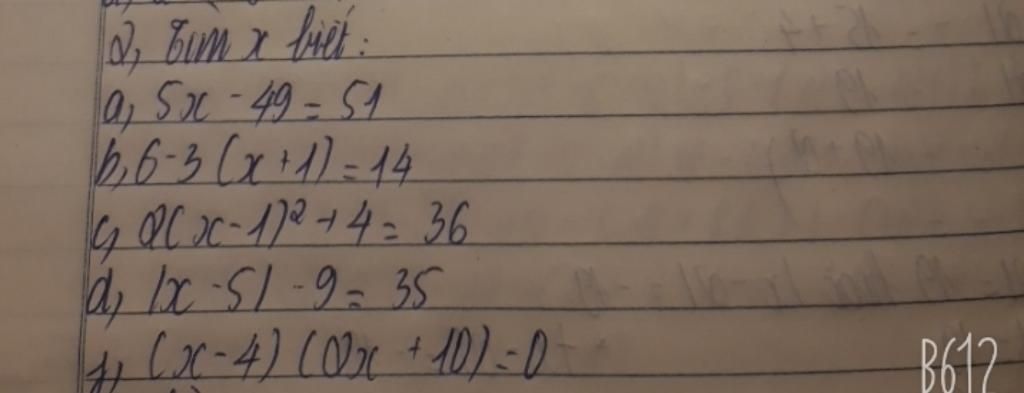 2, Tìm x biết:
a, 5x - 49 = 51
b, 6 - 3 (x + 1) = 14
c, 2(x - 1)² + 4 = 36
d, |x - 5| - 9 = 35
(x - 4) (2x + 10) = 0
B612